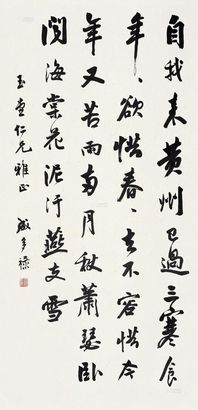 自我来黄州已過三寒食
年、欲惜春、去不容惜今
年又苦雨兩月秋蕭瑟卧
聞海棠花泥汙燕支雪
玉堂仁兄雅正